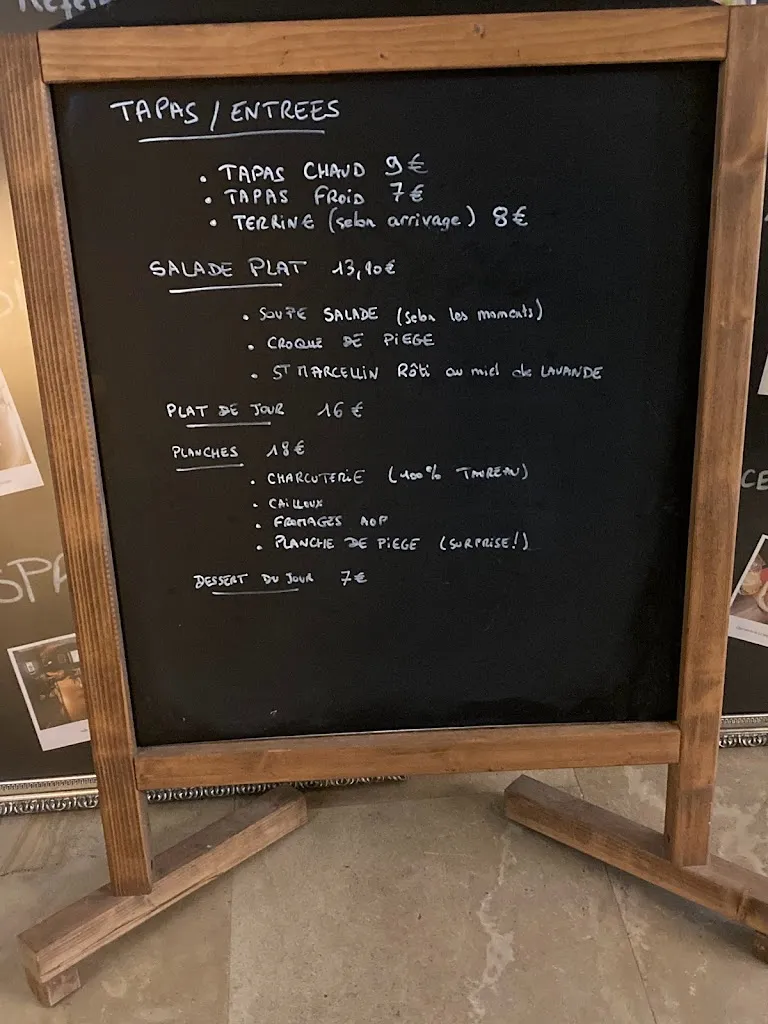 TAPAS / ENTREES
• TAPAS CHAUD 9€
• TAPAS FROID 7€
• TERRINE (selon arrivage) 8€
SALADE PLAT 13,90€
• SOUPE SALADE (selon les moments)
• CROQUE DE PIEGE
• ST MARCELLIN Rôti au miel de LAVANDE
PLAT DE JOUR 16€
PLANCHES 18€
• CHARCUTERIE (100% TAUREAU)
• CAILLOUX
• FROMAGES AOP
• PLANCHE DE PIEGE (SURPRISE!)
DESSERT DU JOUR 7€